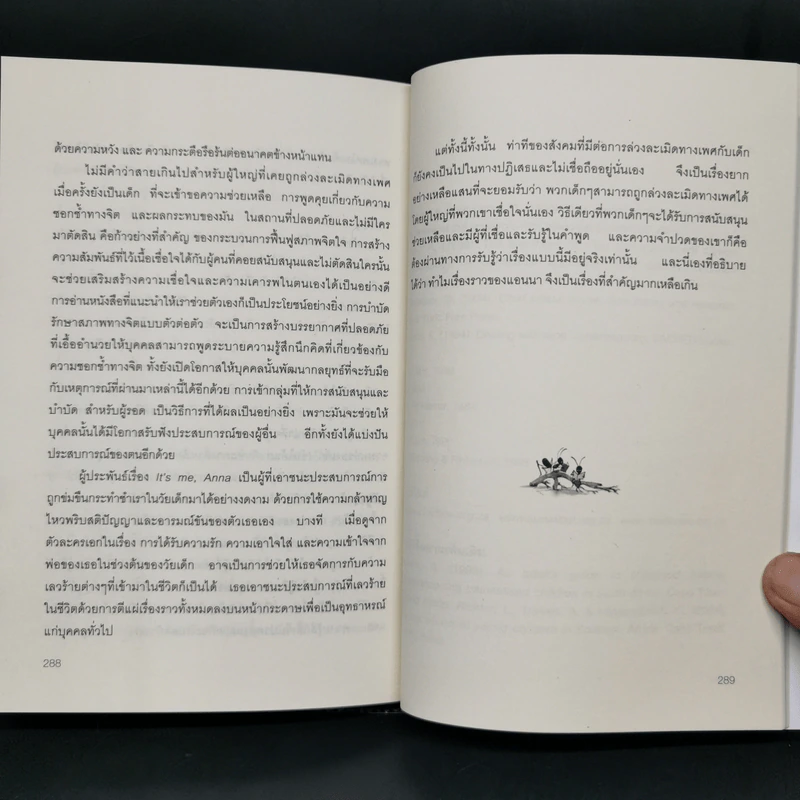 ด้วยความหวัง และ ความกระตือรือร้นต่ออนาคตข้างหน้าแทน
ไม่มีคำว่าสายเกินไปสำหรับผู้ใหญ่ที่เคยถูกล่วงละเมิดทางเพศ
เมื่อครั้งยังเป็นเด็ก ที่จะเข้าขอความช่วยเหลือ การพูดคุยเกี่ยวกับความ
ชอกช้ำทางจิต และผลกระทบของมัน ในสถานที่ปลอดภัยและไม่มีใคร
มาตัดสิน คือก้าวย่างที่สำคัญ ของกระบวนการฟื้นฟูสภาพจิตใจ การสร้าง
ความสัมพันธ์ที่ไว้เนื้อเชื่อใจได้กับผู้คนที่คอยสนับสนุนและไม่ตัดสินใครนั้น
จะช่วยเสริมสร้างความเชื่อใจและความเคารพในตนเองได้เป็นอย่างดี
การอ่านหนังสือที่แนะนำให้เราช่วยตัวเองก็เป็นประโยชน์อย่างยิ่ง การบำบัด
รักษาสภาพทางจิตแบบตัวต่อตัว จะเป็นการสร้างบรรยากาศที่ปลอดภัย
ที่เอื้ออำนวยให้บุคคลสามารถพูดระบายความรู้สึกนึกคิดที่เกี่ยวข้องกับ
ความชอกช้ำทางจิต ทั้งยังเปิดโอกาสให้บุคคลนั้นพัฒนากลยุทธ์ที่จะรับมือ
กับเหตุการณ์ที่ผ่านมาเหล่านี้ได้อีกด้วย การเข้ากลุ่มที่ให้การสนับสนุนและ
บำบัด สำหรับผู้รอด เป็นวิธีการที่ได้ผลเป็นอย่างยิ่ง เพราะมันจะช่วยให้
บุคคลนั้นได้มีโอกาสรับฟังประสบการณ์ของผู้อื่น อีกทั้งยังได้แบ่งปัน
ประสบการณ์ของตนอีกด้วย
ผู้ประพันธ์เรื่อง It's me, Anna เป็นผู้ที่เอาชนะประสบการณ์การ
ถูกข่มขืนกระทำชำเราในวัยเด็กมาได้อย่างงดงาม ด้วยการใช้ความกล้าหาญ
ไหวพริบสติปัญญาและอารมณ์ขันของตัวเธอเอง บางที เมื่อดูจาก
ตัวละครเอกในเรื่อง การได้รับความรัก ความเอาใจใส่ และความเข้าใจจาก
พ่อของเธอในช่วงต้นของวัยเด็ก อาจเป็นการช่วยให้เธอจัดการกับความ
เลวร้ายต่างๆที่เข้ามาในชีวิตก็เป็นได้ เธอเอาชนะประสบการณ์ที่เลวร้าย
ในชีวิตด้วยการตีแผ่เรื่องราวทั้งหมดลงบนหน้ากระดาษเพื่อเป็นอุทธาหรณ์
แก่บุคคลทั่วไป
288
แต่ทั้งนี้ทั้งนั้น ท่าทีของสังคมที่มีต่อการล่วงละเมิดทางเพศกับเด็ก
ก็ยังคงเป็นไปในทางปฏิเสธและไม่เชื่อถืออยู่นั่นเอง จึงเป็นเรื่องยาก
อย่างเหลือแสนที่จะยอมรับว่า พวกเด็กๆสามารถถูกล่วงละเมิดทางเพศได้
โดยผู้ใหญ่ที่พวกเขาเชื่อใจนั่นเอง วิธีเดียวที่พวกเด็กๆจะได้รับการสนับสนุน
ช่วยเหลือและมีผู้ที่เชื่อและรับรู้ในคำพูด และความจำปวดของเขาก็คือ
ต้องผ่านทางการรับรู้ว่าเรื่องแบบนี้มีอยู่จริงเท่านั้น และนี่เองที่อธิบาย
ได้ว่า ทำไมเรื่องราวของแอนนา จึงเป็นเรื่องที่สำคัญมากเหลือเกิน
289